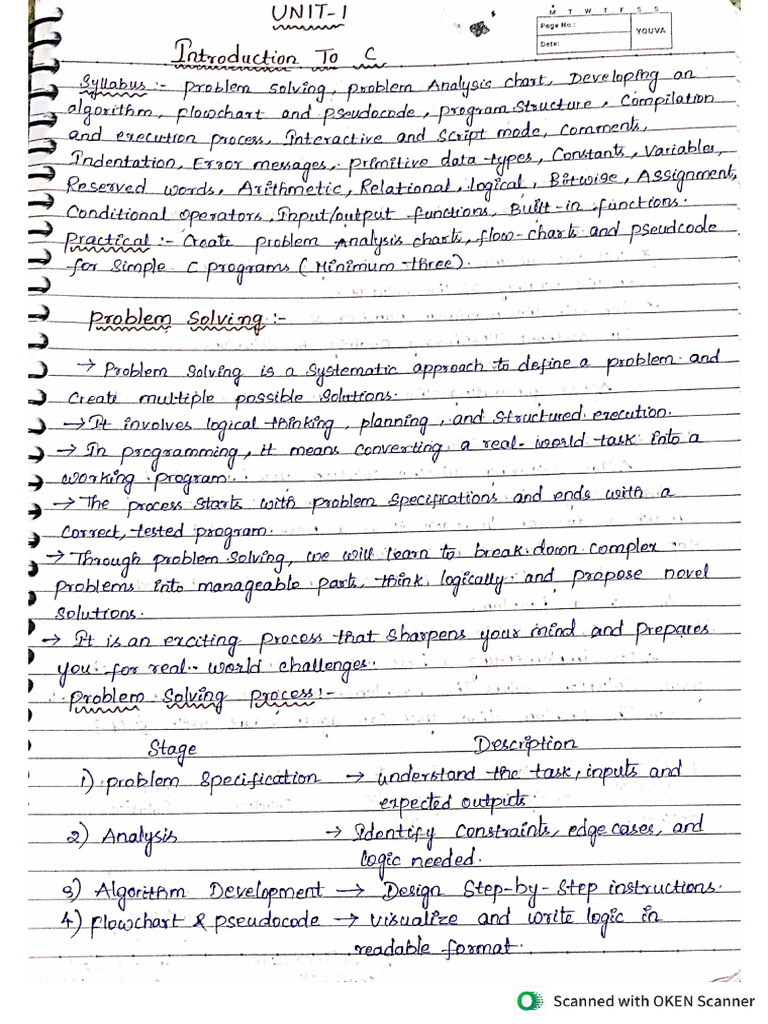 UNIT-1
M T W T F S S
Page No.:
YOUVA
Date:
Introduction To C
Syllabus :- problem solving, problem Analysis chart, Developing an
algorithm, flowchart and pseudocode, program structure, Compilation
and execution process, Interactive and Script mode, Comments,
Indentation, Error messages, primitive data types, Constants, Variables,
Reserved words, Arithmetic, Relational, logical, Bitwise, Assignment,
Conditional operators, Input/output functions, Built-in functions.
Practical :- Create problem Analysis charts, flow-charts and pseudcode
for Simple C programs (Minimum three).
Problem Solving :-
→ Problem Solving is a Systematic approach to define a problem and
Create multiple possible Solutions.
→ It involves logical thinking, planning, and structured execution.
→ In programming, it means converting a real-world task into a
working program.
→ The process starts with problem specifications and ends with a
correct, tested program.
→ Through problem solving, we will learn to break down complex
problems into manageable parts, think logically and propose novel
solutions.
→ It is an exciting process that sharpens your mind and prepares
you for real-world challenges.
Problem Solving process :-
Stage Description
1) problem Specification → understand the task, inputs and
expected outputs.
2) Analysis → Identify constraints, edge cases, and
logic needed.
3) Algorithm Development → Design Step-by-Step instructions.
4) flowchart & pseudocode → visualize and write logic in
readable format.
Scanned with OKEN Scanner